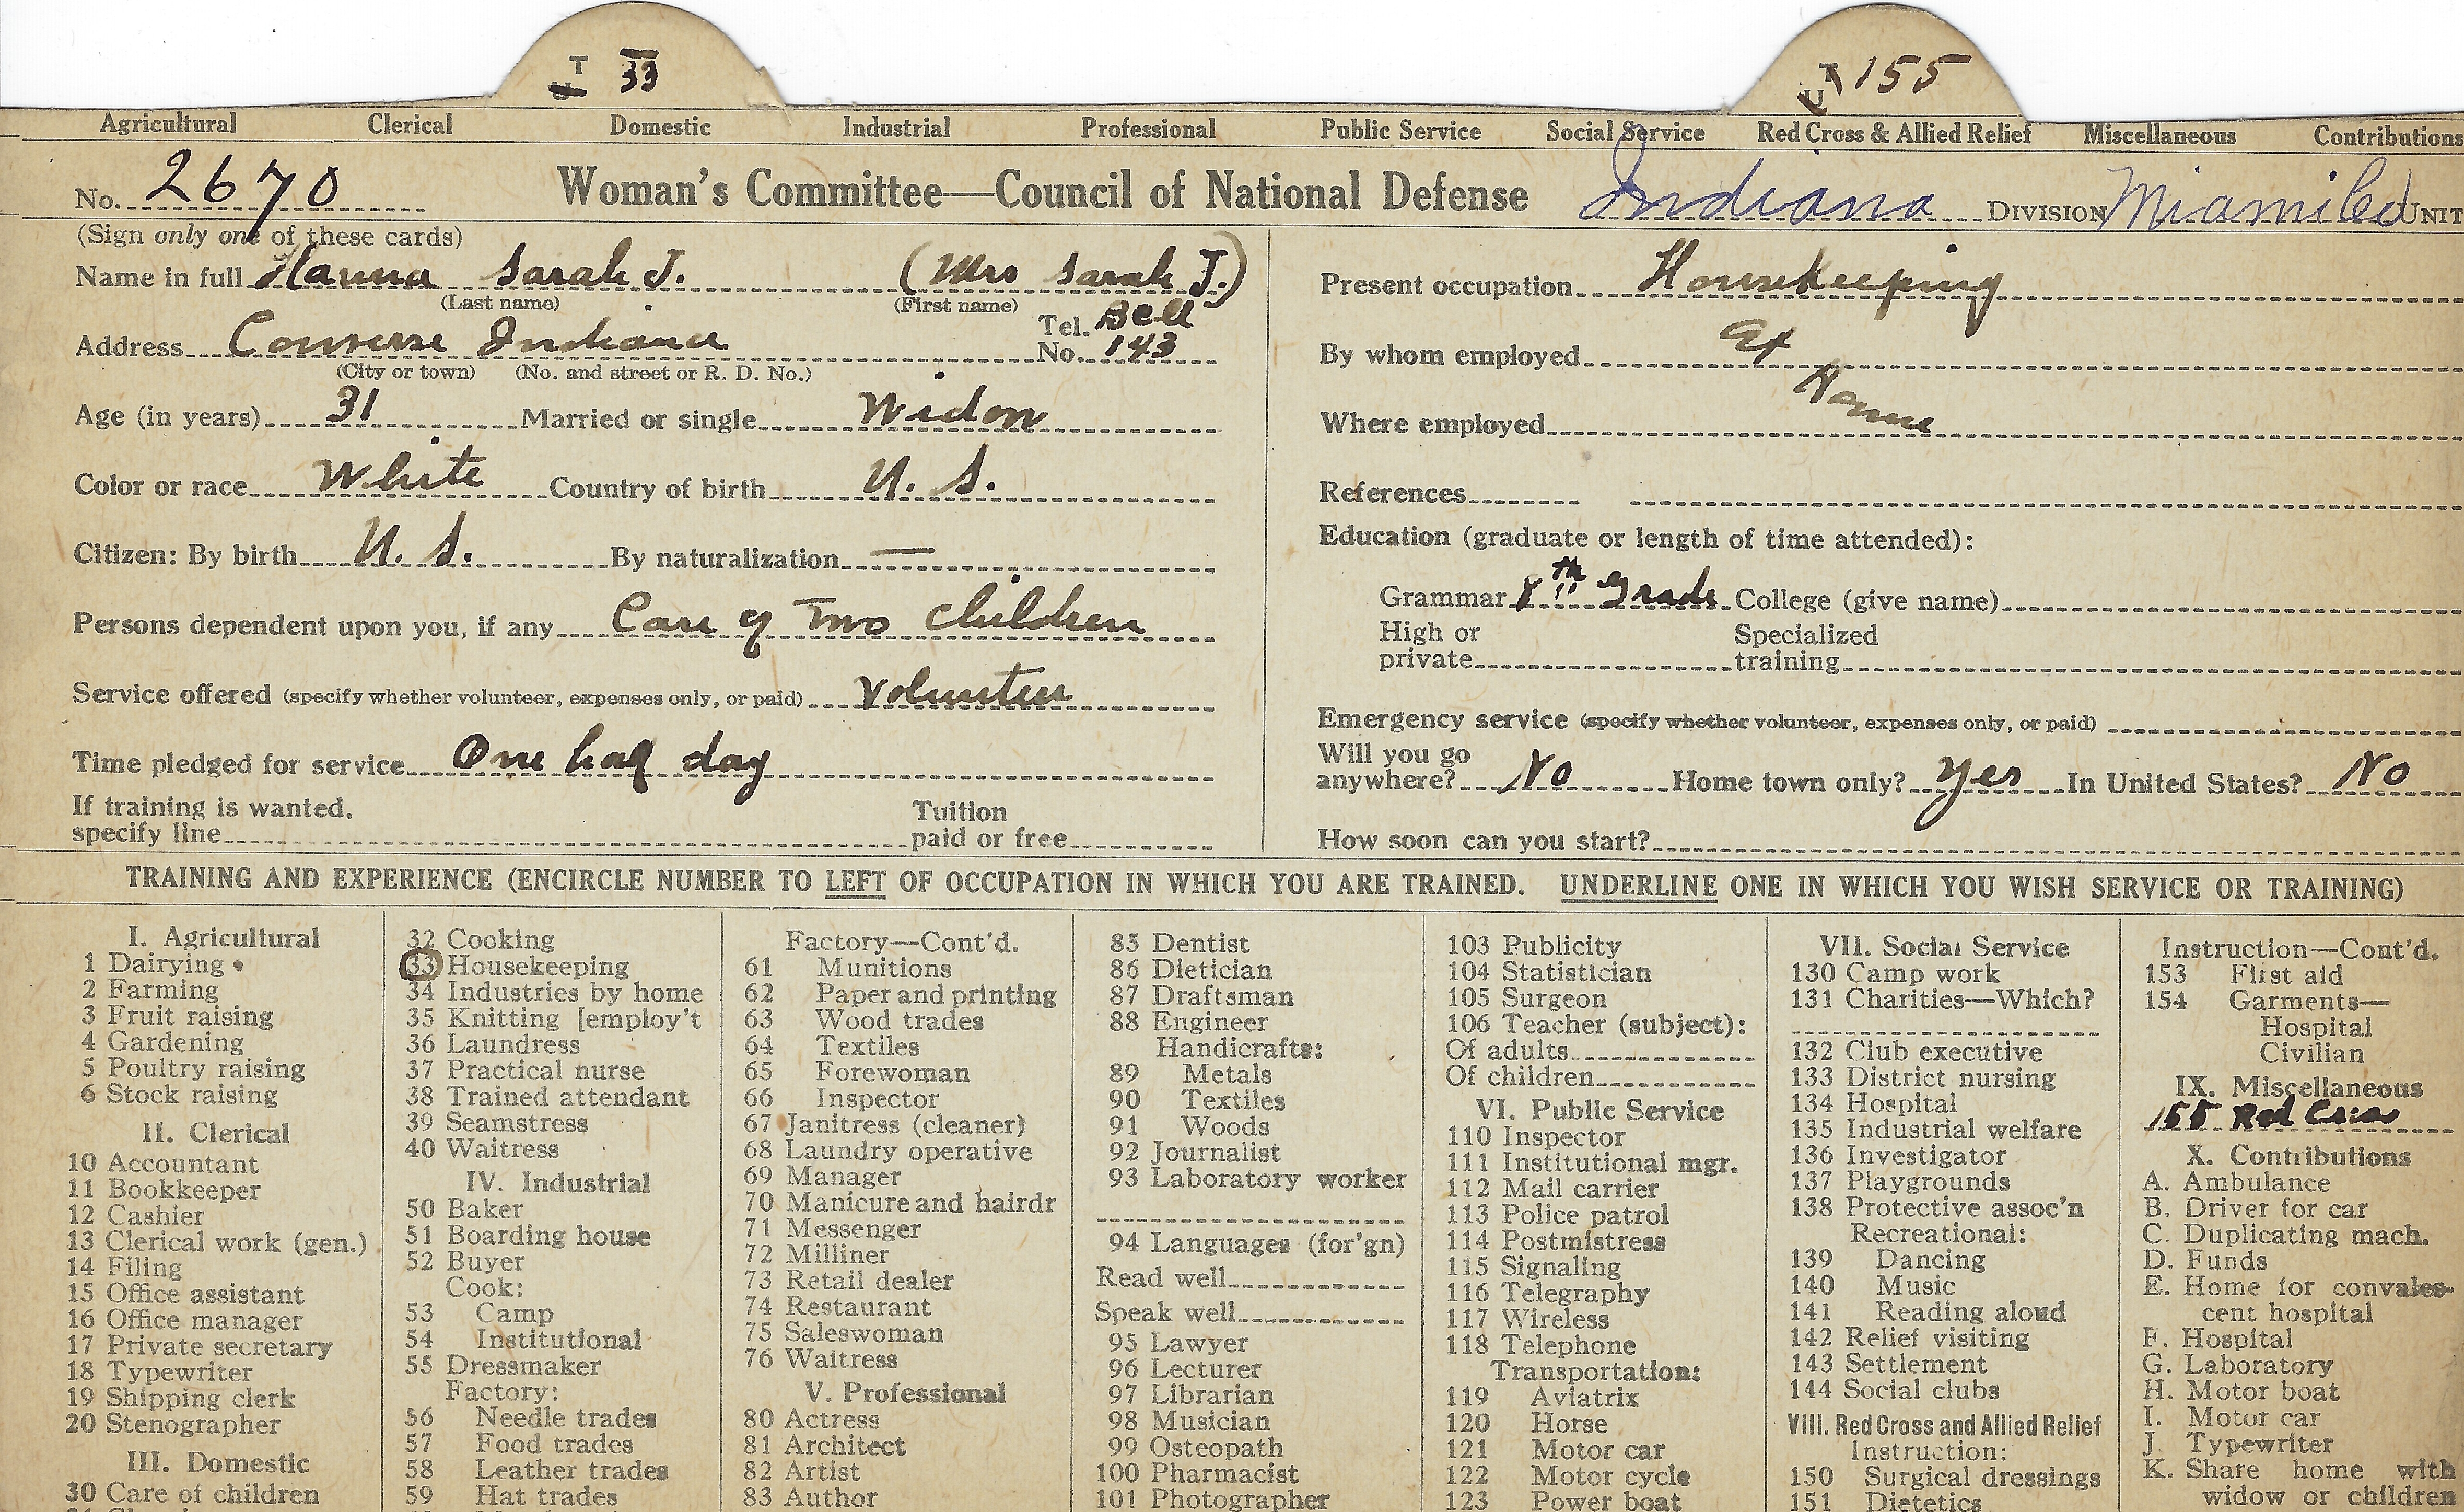 T U 33
T U 155
Agricultural Clerical Domestic Industrial Professional Public Service Social Service Red Cross & Allied Relief Miscellaneous Contributions
No. 2670 Woman's Committee—Council of National Defense Indiana DIVISION Miami Co UNIT
(Sign only one of these cards)
Name in full Hanna Sarah J. (Mrs Sarah J.)
(Last name) (First name)
Address Converse Indiana Tel. No. Bell 143
(City or town) (No. and street or R. D. No.)
Age (in years) 31 Married or single Widow
Color or race White Country of birth U. S.
Citizen: By birth U. S. By naturalization —
Persons dependent upon you, if any Care of Two Children
Service offered (specify whether volunteer, expenses only, or paid) Volunteer
Time pledged for service One half day
If training is wanted, specify line Tuition paid or free
Present occupation Housekeeping
By whom employed at
Where employed Home
References
Education (graduate or length of time attended):
Grammar 8th grade College (give name)
High or private Specialized training
Emergency service (specify whether volunteer, expenses only, or paid)
Will you go anywhere? No Home town only? Yes In United States? No
How soon can you start?
TRAINING AND EXPERIENCE (ENCIRCLE NUMBER TO LEFT OF OCCUPATION IN WHICH YOU ARE TRAINED. UNDERLINE ONE IN WHICH YOU WISH SERVICE OR TRAINING)
I. Agricultural
1 Dairying
2 Farming
3 Fruit raising
4 Gardening
5 Poultry raising
6 Stock raising
II. Clerical
10 Accountant
11 Bookkeeper
12 Cashier
13 Clerical work (gen.)
14 Filing
15 Office assistant
16 Office manager
17 Private secretary
18 Typewriter
19 Shipping clerk
20 Stenographer
III. Domestic
30 Care of children
32 Cooking
33 Housekeeping
34 Industries by home
35 Knitting [employ't
36 Laundress
37 Practical nurse
38 Trained attendant
39 Seamstress
40 Waitress
IV. Industrial
50 Baker
51 Boarding house
52 Buyer
Cook:
53 Camp
54 Institutional
55 Dressmaker
Factory:
56 Needle trades
57 Food trades
58 Leather trades
59 Hat trades
Factory—Cont'd.
61 Munitions
62 Paper and printing
63 Wood trades
64 Textiles
65 Forewoman
66 Inspector
67 Janitress (cleaner)
68 Laundry operative
69 Manager
70 Manicure and hairdr
71 Messenger
72 Milliner
73 Retail dealer
74 Restaurant
75 Saleswoman
76 Waitress
V. Professional
80 Actress
81 Architect
82 Artist
83 Author
85 Dentist
86 Dietician
87 Draftsman
88 Engineer
Handicrafts:
89 Metals
90 Textiles
91 Woods
92 Journalist
93 Laboratory worker
94 Languages (for'gn)
Read well
Speak well
95 Lawyer
96 Lecturer
97 Librarian
98 Musician
99 Osteopath
100 Pharmacist
101 Photographer
103 Publicity
104 Statistician
105 Surgeon
106 Teacher (subject):
Of adults
Of children
VI. Public Service
110 Inspector
111 Institutional mgr.
112 Mail carrier
113 Police patrol
114 Postmistress
115 Signaling
116 Telegraphy
117 Wireless
118 Telephone
Transportation:
119 Aviatrix
120 Horse
121 Motor car
122 Motor cycle
123 Power boat
VII. Social Service
130 Camp work
131 Charities—Which?
132 Club executive
133 District nursing
134 Hospital
135 Industrial welfare
136 Investigator
137 Playgrounds
138 Protective assoc'n
Recreational:
139 Dancing
140 Music
141 Reading aloud
142 Relief visiting
143 Settlement
144 Social clubs
VIII. Red Cross and Allied Relief
Instruction:
150 Surgical dressings
151 Dietetics
Instruction—Cont'd.
153 First aid
154 Garments—
Hospital
Civilian
IX. Miscellaneous
155 Red Cross
X. Contributions
A. Ambulance
B. Driver for car
C. Duplicating mach.
D. Funds
E. Home for convales-
cent hospital
F. Hospital
G. Laboratory
H. Motor boat
I. Motor car
J. Typewriter
K. Share home with
widow or children